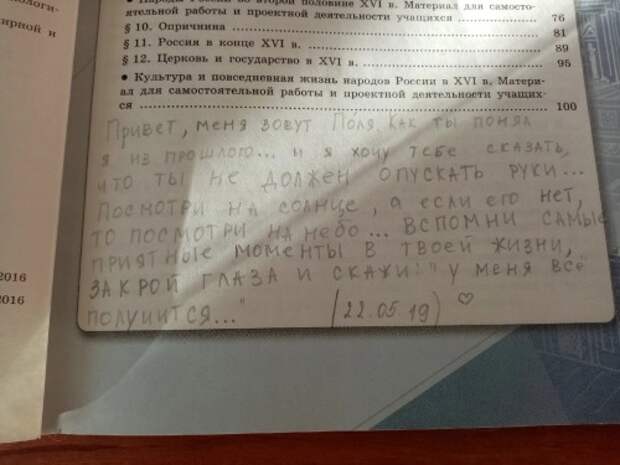 ологи-
ирной и
Народы России во второй половине XVI в. Материал для самосто-
ятельной работы и проектной деятельности учащихся ... 76
§ 10. Опричнина ... 81
§ 11. Россия в конце XVI в. ... 89
§ 12. Церковь и государство в XVI в. ... 95
• Культура и повседневная жизнь народов России в XVI в. Матери-
ал для самостоятельной работы и проектной деятельности учащих-
ся ... 100
Привет, меня зовут Поля. Как ты понял
я из прошлого... и я хочу тебе сказать,
что ты не должен опускать руки...
Посмотри на солнце, а если его нет,
то посмотри на небо... Вспомни самые
приятные моменты в твоей жизни,
закрой глаза и скажи: "у меня всё
получится..." (22.05.19) ♡
2016
2016